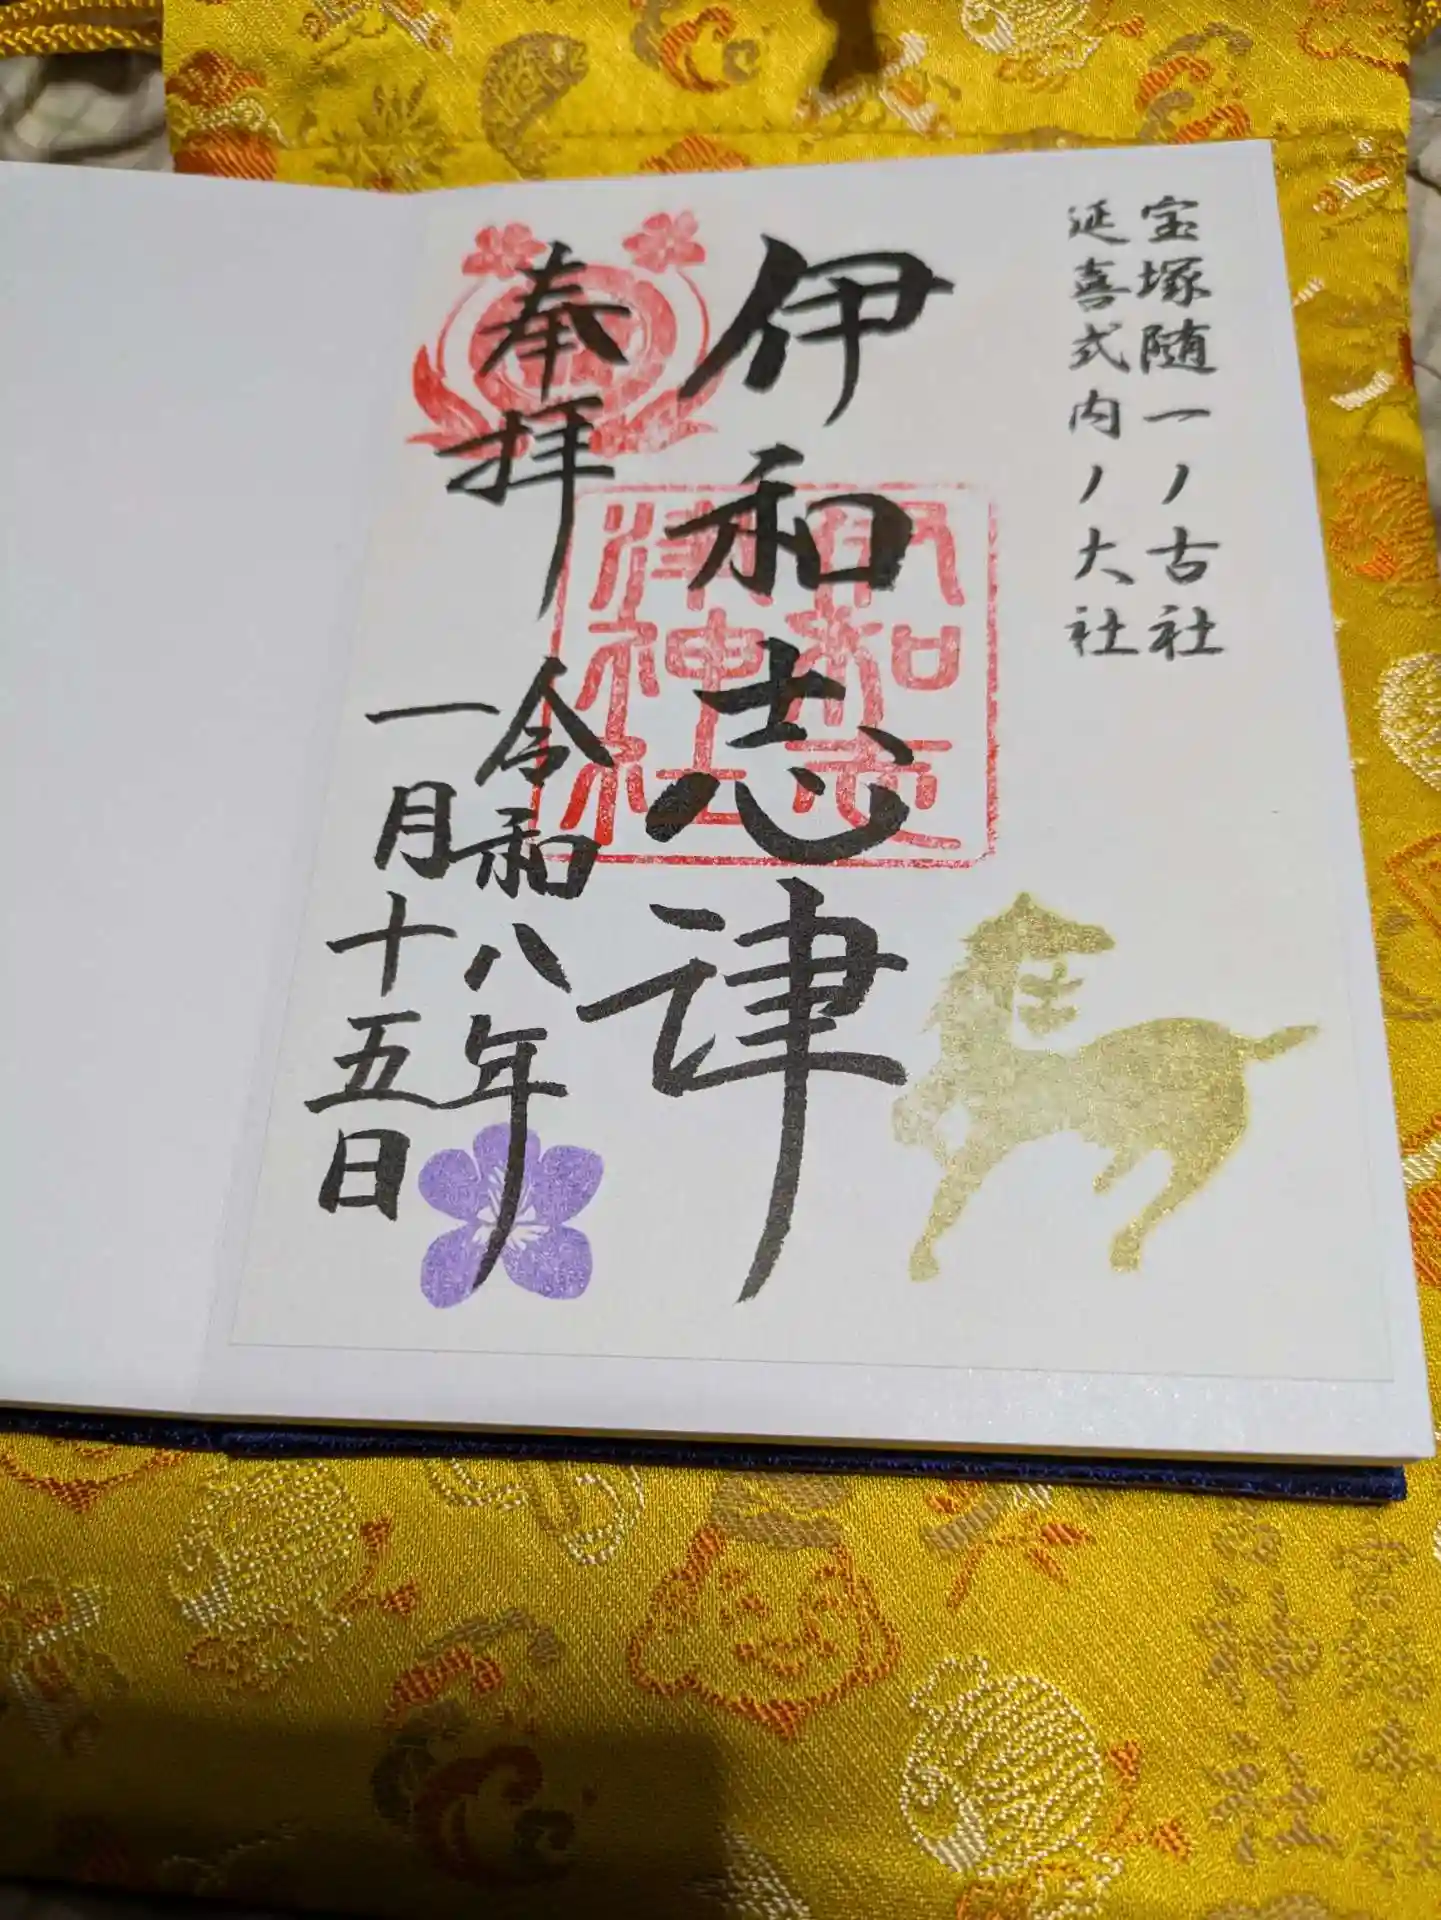 宝塚随一ノ古社
延喜式内ノ大社
伊和志津
伊和志
津神社
奉拝
令和八年
一月十五日